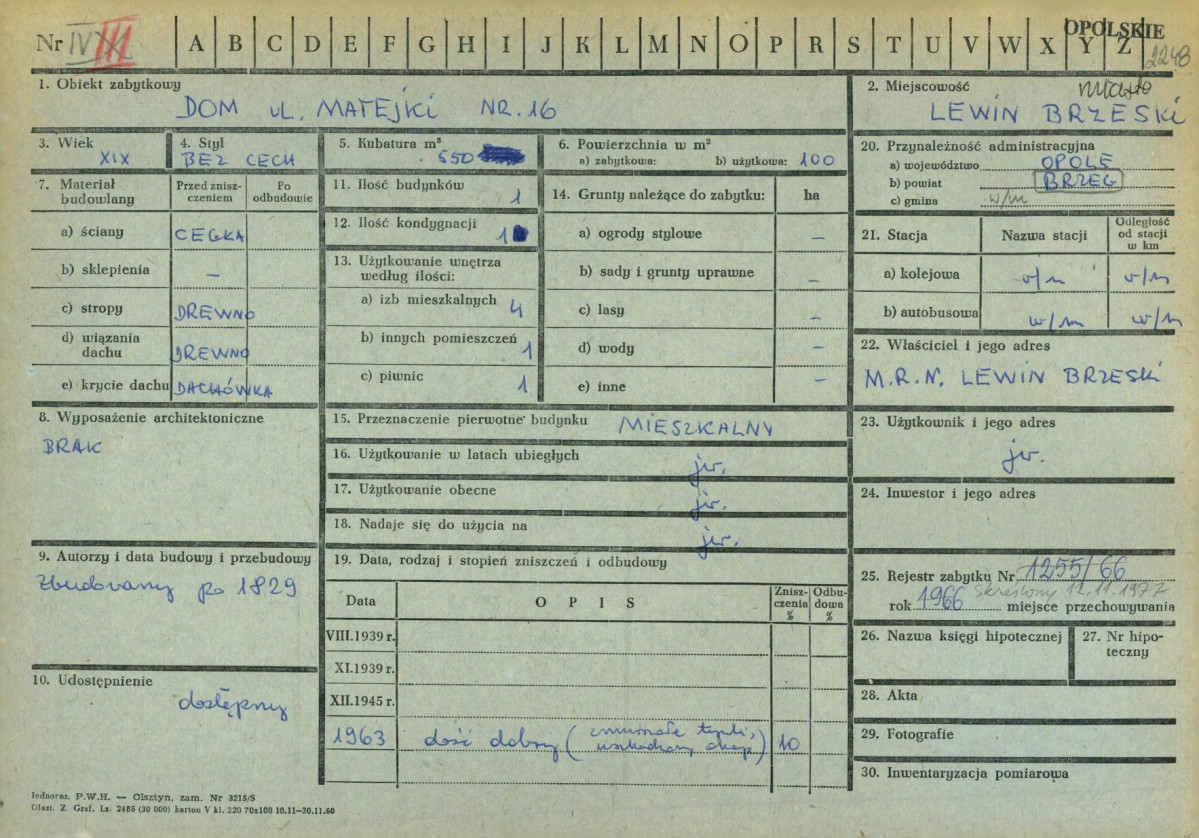 Nr IV III
A B C D E F G H I J K L M N O P R S T U V W X Y Z
OPOLSKIE
2248
1. Obiekt zabytkowy
DOM UL. MATEJKI NR. 16
2. Miejscowość miasto
LEWIN BRZESKI
3. Wiek
XIX
4. Styl
BEZ CECH
5. Kubatura m³
550
6. Powierzchnia w m²
a) zabytkowa: b) użytkowa: 100
20. Przynależność administracyjna
a) województwo OPOLE
b) powiat BRZEG
c) gmina w/m
7. Materiał budowlany
Przed zniszczeniem
Po odbudowie
a) ściany CEGŁA
b) sklepienia –
c) stropy DREWNO
d) wiązania dachu DREWNO
e) krycie dachu DACHÓWKA
11. Ilość budynków 1
12. Ilość kondygnacji 1
13. Użytkowanie wnętrza według ilości:
a) izb mieszkalnych 4
b) innych pomieszczeń 1
c) piwnic 1
14. Grunty należące do zabytku: ha
a) ogrody stylowe –
b) sady i grunty uprawne –
c) lasy –
d) wody –
e) inne –
21. Stacja
Nazwa stacji
Odległość od stacji w km
a) kolejowa w/m w/m
b) autobusowa w/m w/m
22. Właściciel i jego adres
M.R.N. LEWIN BRZESKI
8. Wyposażenie architektoniczne
BRAK
15. Przeznaczenie pierwotne budynku MIESZKALNY
16. Użytkowanie w latach ubiegłych jw.
17. Użytkowanie obecne jw.
18. Nadaje się do użycia na jw.
23. Użytkownik i jego adres
jw.
24. Inwestor i jego adres
9. Autorzy i data budowy i przebudowy
Zbudowany po 1829
10. Udostępnienie
dostępny
19. Data, rodzaj i stopień zniszczeń i odbudowy
Data
O P I S
Zniszczenia %
Odbudowa %
VIII.1939 r.
XI.1939 r.
XII.1945 r.
1963 dość dobry (zmurszałe tynki, uszkodzony okap) 10
25. Rejestr zabytku Nr 1255/66
skreślony 12.11.1977
rok 1966 miejsce przechowywania
26. Nazwa księgi hipotecznej
27. Nr hipoteczny
28. Akta
29. Fotografie
30. Inwentaryzacja pomiarowa
Jednoraz. P.W.H. — Olsztyn, zam. Nr 3215/S
Olszt. Z. Graf. Lz. 2486 (30 000) karton V kl. 220 70x100 10.11—30.11.60